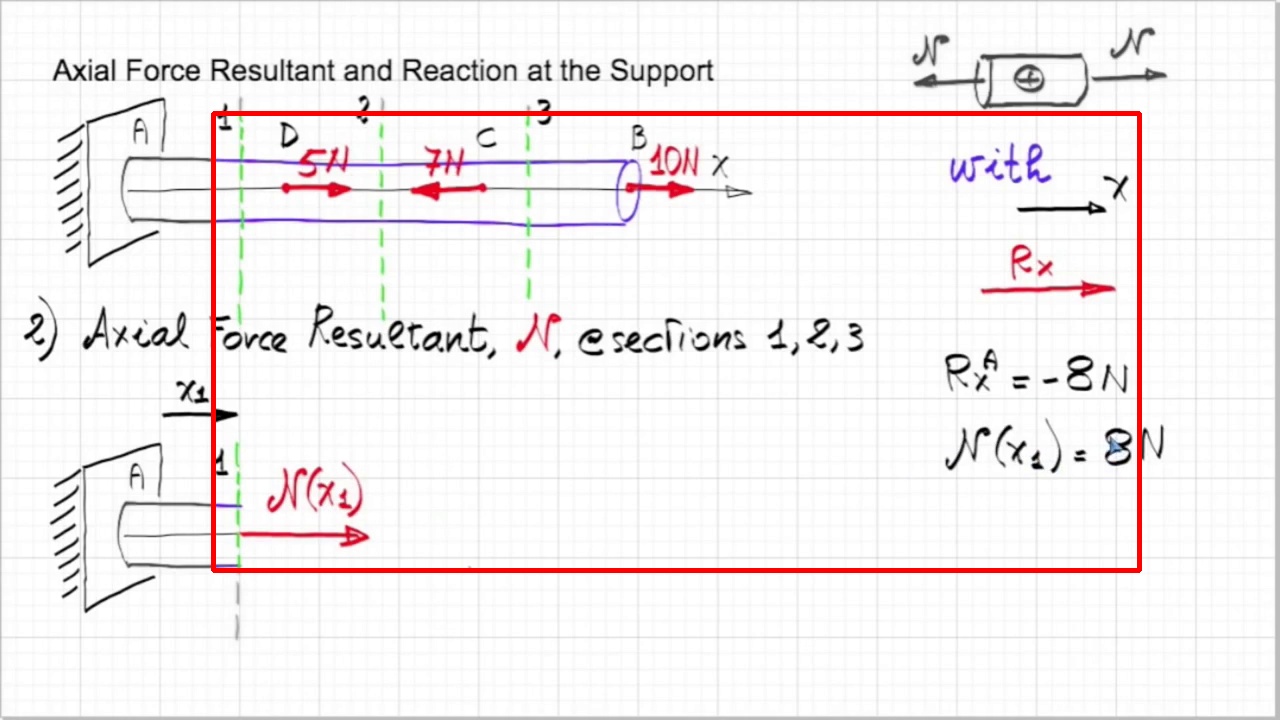 Axial Force Resultant and Reaction at the Support
N N
+
1 2 3
A D C B
5N 7N 10N x
with
x
Rx
2) Axial Force Resultant, N, @sections 1,2,3
RxA = -8N
x1
N(x1) = 8N
A 1
N(x1)